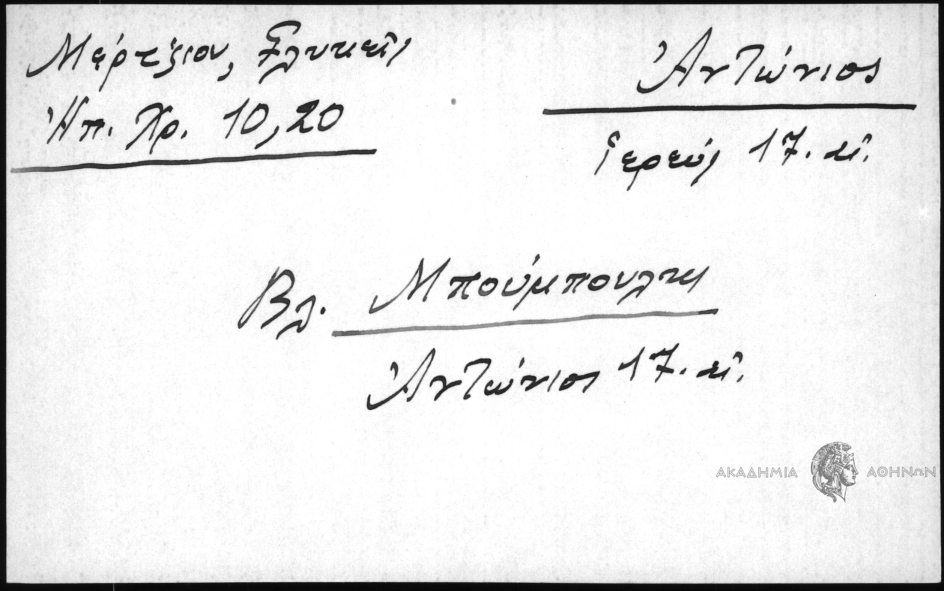 Μέρτζιου, Γλυκεῖς
Ἠπ. Χρ. 10, 20
Ἀντώνιος
ἱερεύς 17. αἰ.
Βλ. Μπούμπουλης
Ἀντώνιος 17. αἰ.
ΑΚΑΔΗΜΙΑ ΑΘΗΝΩΝ